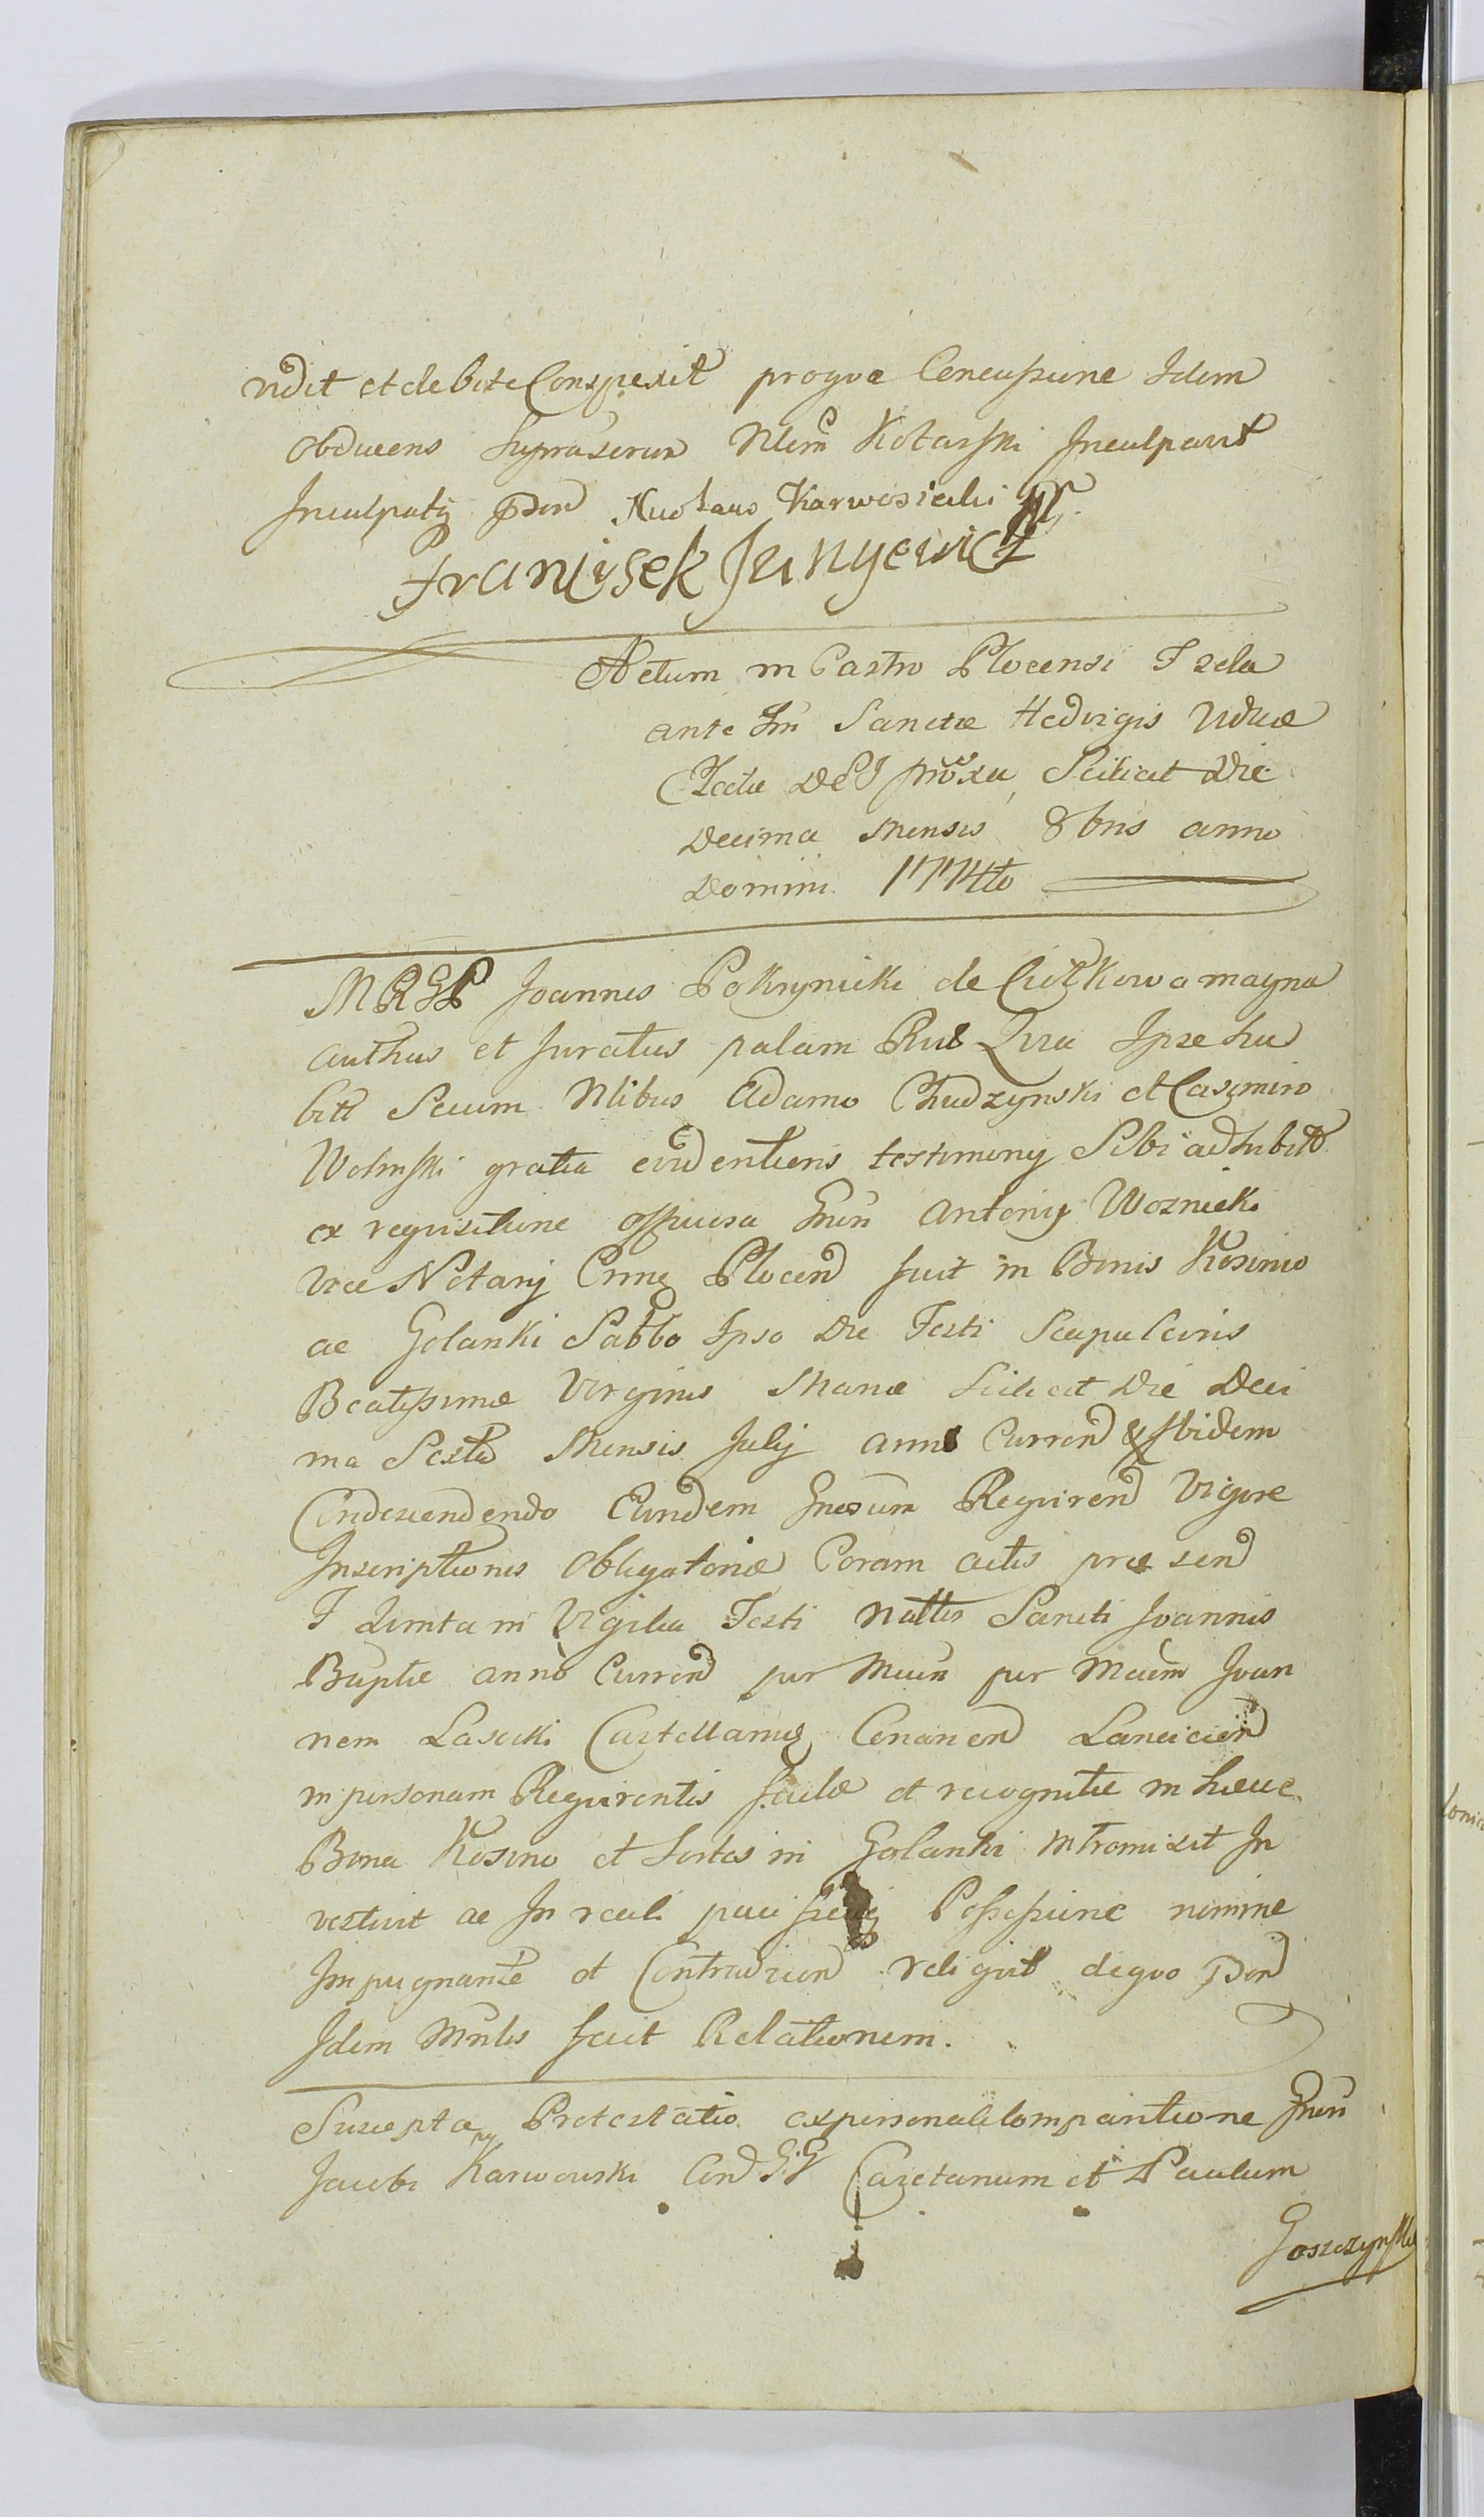 ndit et debite Conspexit proqva Concussione Idem
Obducens Supraserum Nlem Kotarski Inculpavit
Inculpatg
Franciszek Jungewicz
Actum in Castro Plocensi F 2da
ante fm Sanctæ Hedvigis Viduæ
Electæ proxa Scilicet die
Decima Mensis 8bris anno
Domini 1774to
MRGP Joannes Pokrynicki de Ciółkowo magna
authus et Juratus palam Rult Qvia Ipse ha
bitt Secum Nlibus Adamo Chudzynski et Casimiro
Wolinski gratia evidentioris testimony Sibi adhibitt
ex reqvisitione officiosa Gnsi Antony Woznicki
vice Notarij Crnę Plocen fuit in Bonis Kosino
ac Golanki Sabbo Ipso Die Festi Scapularis
Beatissimæ Virginis Mariæ Scilicet Die Deci
ma Sexta Mensis July anni Curren & Ibidem
Condescendendo Eundem Gnosum Reqviren Vigore
Inscriptionis Obligatoriæ Coram actis præsen
F Qvinta in Vigilia Festi Nattis Sancti Joannis
Baptæ anno Curren per Mcum per Mcum Joan
nem Lasocki Castellanum Conarien Lancicien
in personam Reqvirentis factæ et recognitæ in hæcce
Bona Kosino et Sortes in Golanki intromisit In
vestivit ac In reali paci Possessione nemine
Impugnante et Contradicen reliqvit deqvo
Idem Mnlis fecit Relationem.
Suscepta Protestatio ex personali Comparitione Gnsi
Jacobi Karwowski Con G.G Cajetanum et Paulum
Goszczynski